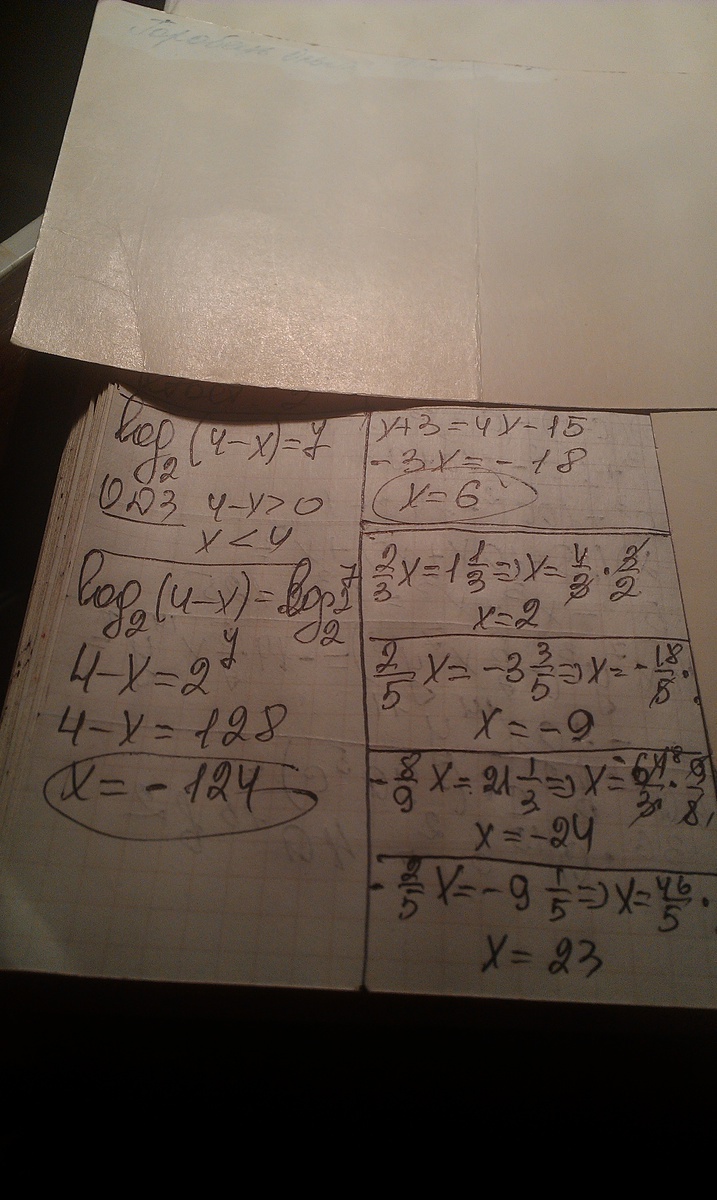 log₂(4-x)=7
ОДЗ 4-x>0
x<4
log₂(4-x)=log₂2⁷
4-x=2⁷
4-x=128
x=-124
x+3=4x-15
-3x=-18
x=6
2/3 x=1 1/3 => x=4/3 · 3/2
x=2
2/5 x=-3 3/5 => x=-18/5 ·
x=-9
-8/9 x=21 1/3 => x=-64⁸/3 · 9/8
x=-24
-2/5 x=-9 1/5 => x=46/5 ·
x=23